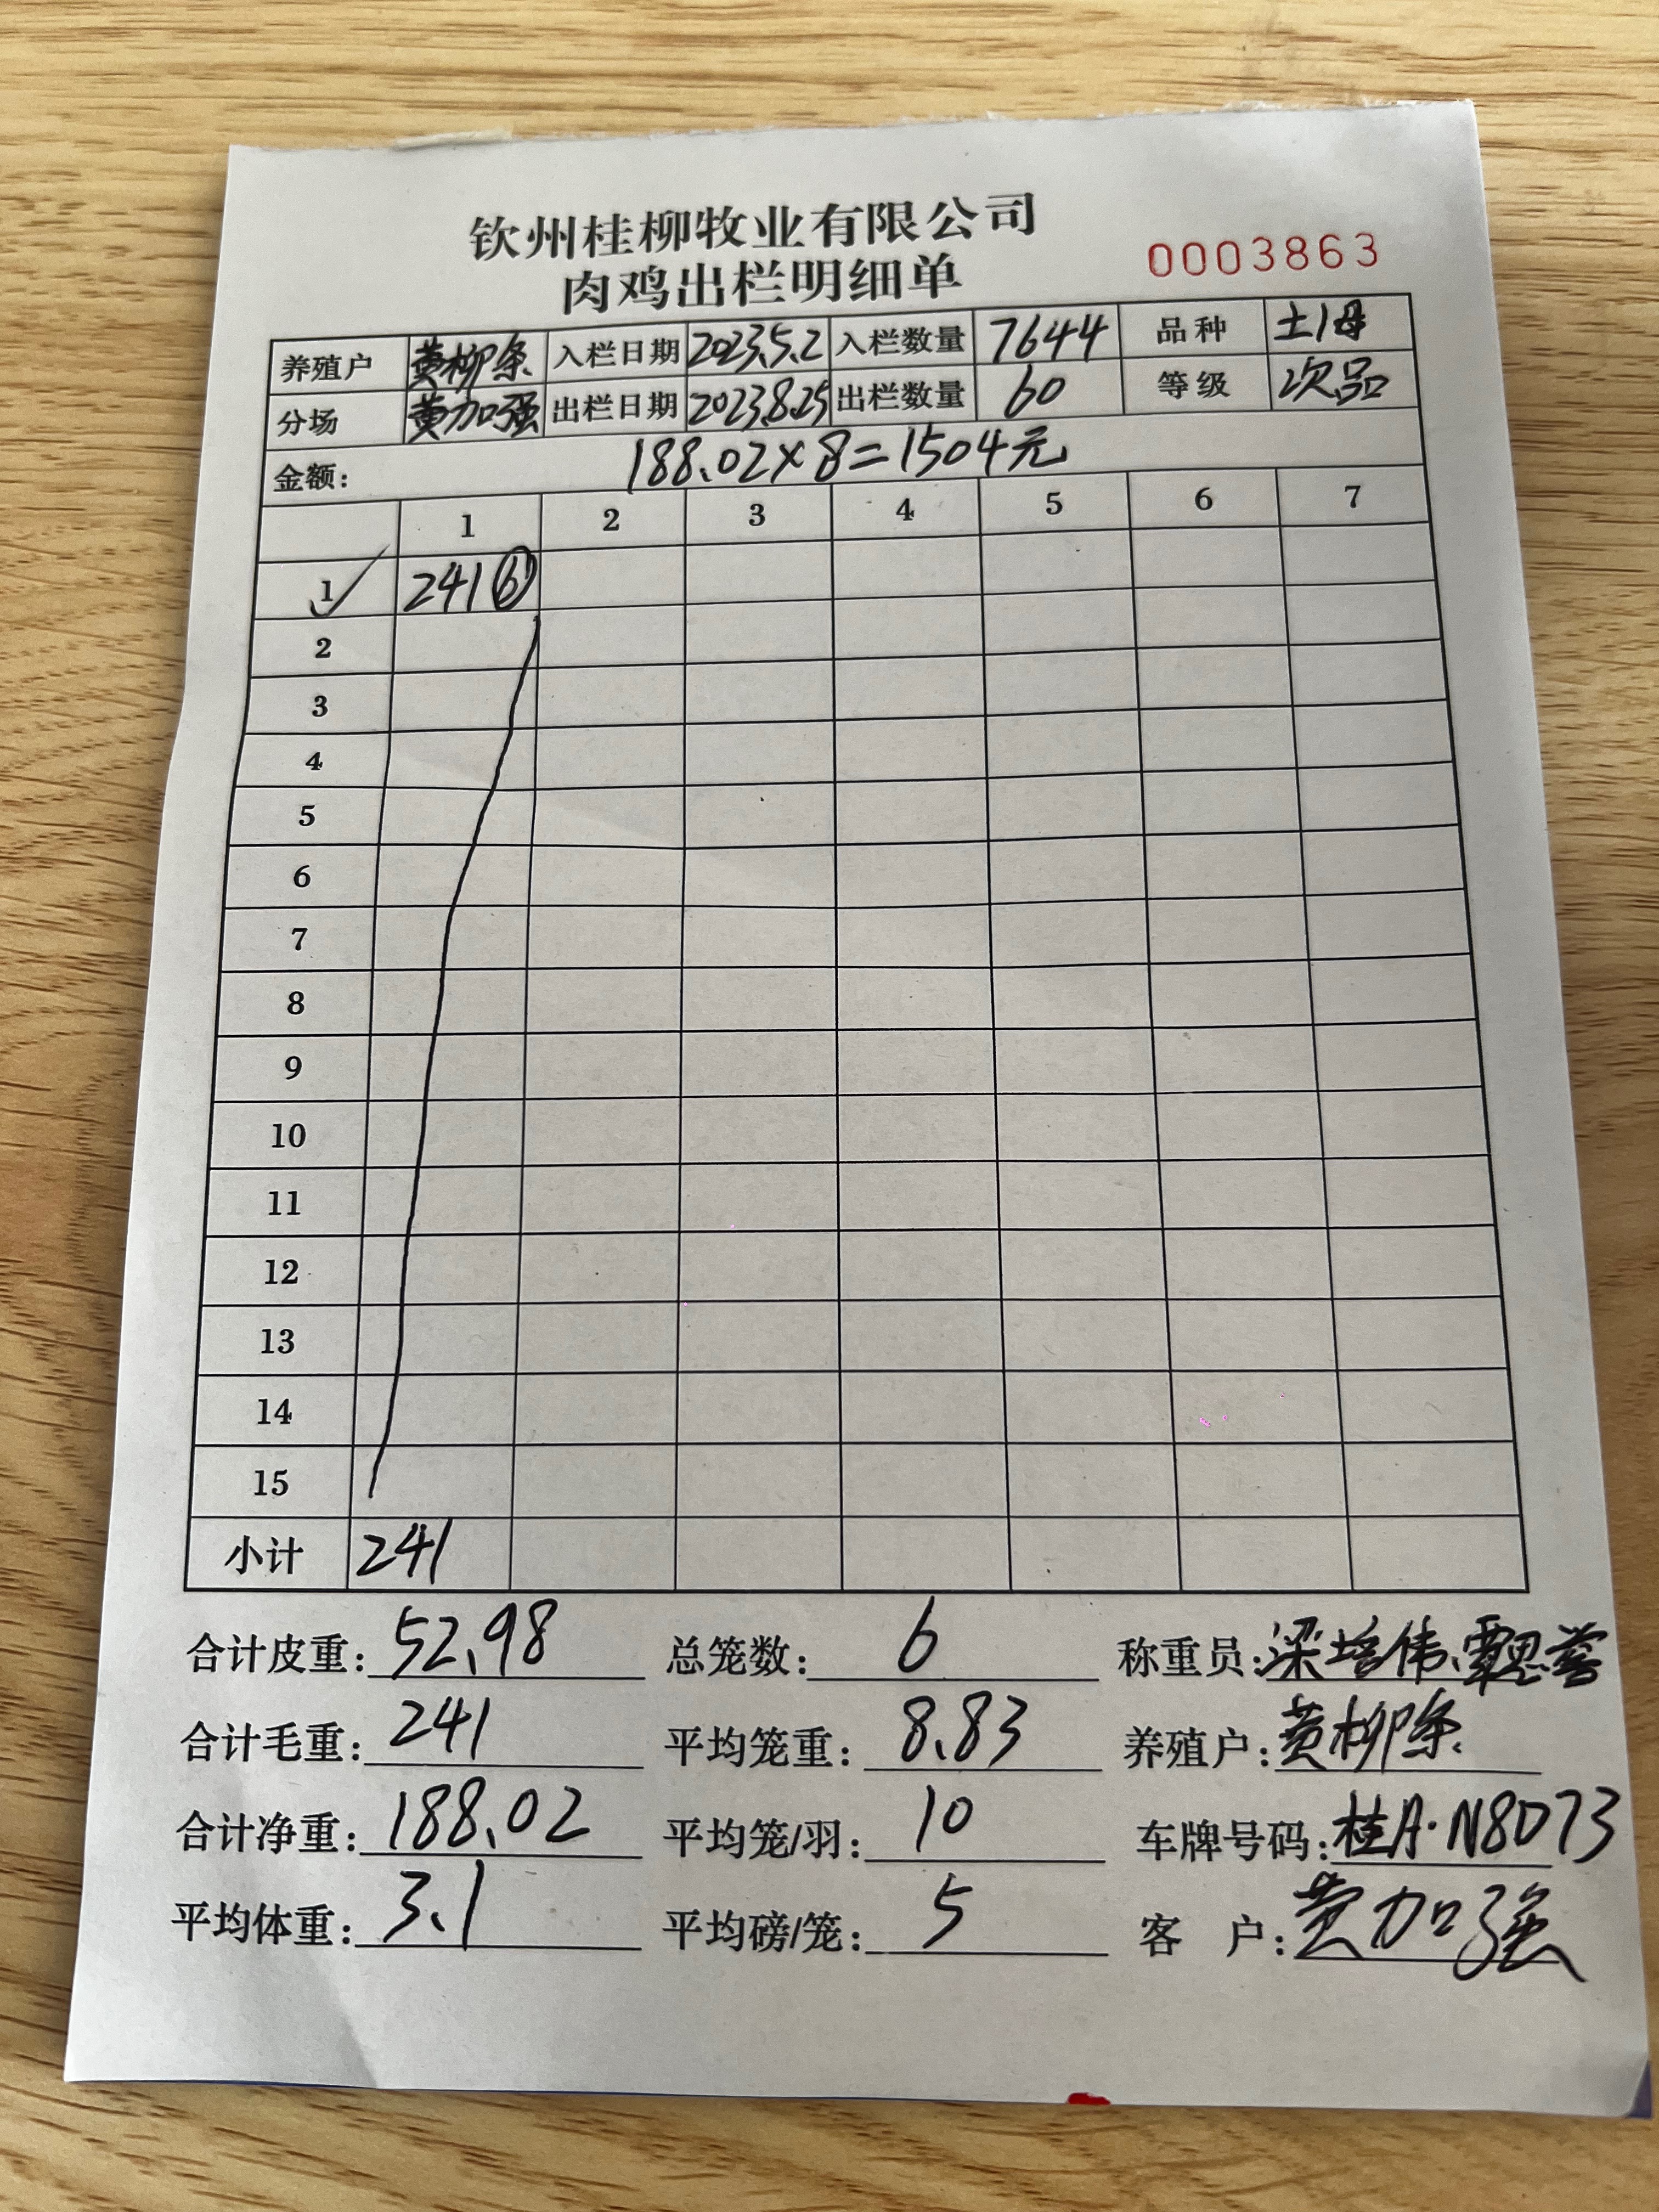 钦州桂柳牧业有限公司
肉鸡出栏明细单 0003863
养殖户 黄柳条 入栏日期 2023.5.2 入栏数量 7644 品种 土1母
分场 黄加强 出栏日期 2023.8.25 出栏数量 60 等级 次品
金额: 188.02×8=1504元
1 2 3 4 5 6 7
1 ✓ 241 ⑥
2
3
4
5
6
7
8
9
10
11
12
13
14
15
小计 241
合计皮重: 52.98 总笼数: 6 称重员: 梁培伟、覃思
合计毛重: 241 平均笼重: 8.83 养殖户: 黄柳条
合计净重: 188.02 平均笼/羽: 10 车牌号码: 桂A·N8D73
平均体重: 3.1 平均磅/笼: 5 客户: 黄加强